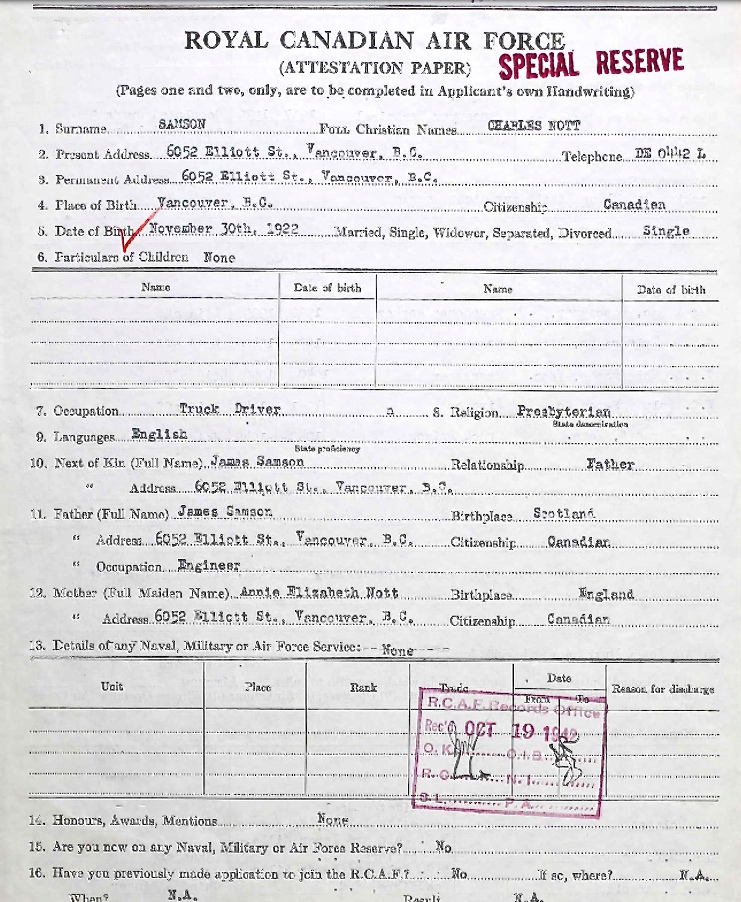 ROYAL CANADIAN AIR FORCE
(ATTESTATION PAPER) SPECIAL RESERVE
(Pages one and two, only, are to be completed in Applicant's own Handwriting)
1. Surname SAMSON Full Christian Names CHARLES NOTT
2. Present Address 6052 Elliott St., Vancouver, B.C. Telephone DE 0442 L
3. Permanent Address 6052 Elliott St., Vancouver, B.C.
4. Place of Birth Vancouver, B.C. Citizenship Canadian
5. Date of Birth November 30th, 1922 Married, Single, Widower, Separated, Divorced Single
6. Particulars of Children None
Name Date of birth Name Date of birth
7. Occupation Truck Driver 8. Religion Presbyterian
State denomination
9. Languages English
State proficiency
10. Next of Kin (Full Name) James Samson Relationship Father
" Address 6052 Elliott St., Vancouver, B.C.
11. Father (Full Name) James Samson Birthplace Scotland
" Address 6052 Elliott St., Vancouver, B.C. Citizenship Canadian
" Occupation Engineer
12. Mother (Full Maiden Name) Annie Elizabeth Nott Birthplace England
" Address 6052 Elliott St., Vancouver, B.C. Citizenship Canadian
13. Details of any Naval, Military or Air Force Service: -- None ----
Unit Place Rank Trade Date From To Reason for discharge
R.C.A.F. Records Office
Rec'd OCT 19 1942
O.K. O.I.B.
R.O. N.I.
S.L. P.A.
14. Honours, Awards, Mentions None
15. Are you now on any Naval, Military or Air Force Reserve? No
16. Have you previously made application to join the R.C.A.F.? No If so, where? N.A.
When? N.A. Result N.A.